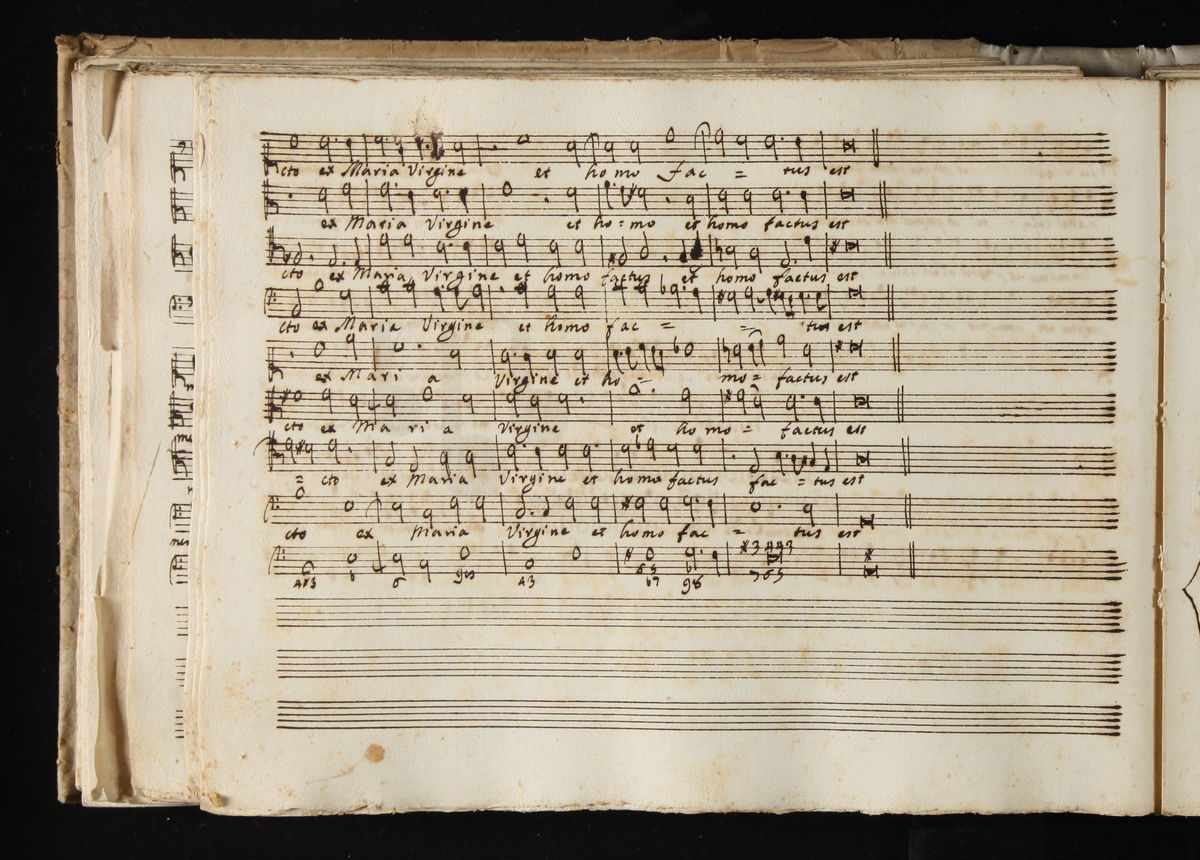 cto ex Maria Virgine et homo fac = tus est
ex Maria Virgine et ho = mo et homo factus est
cto ex Maria Virgine et homo factus et homo factus est
cto ex Maria Virgine et homo fac = = tus est
ex Mari a Virgine et ho = mo = factus est
cto ex Ma ri a Virgine et homo = factus est
= cto ex Maria Virgine et homo factus fac = tus est
cto ex Maria Virgine et homo fac = tus est
6 6 43 98